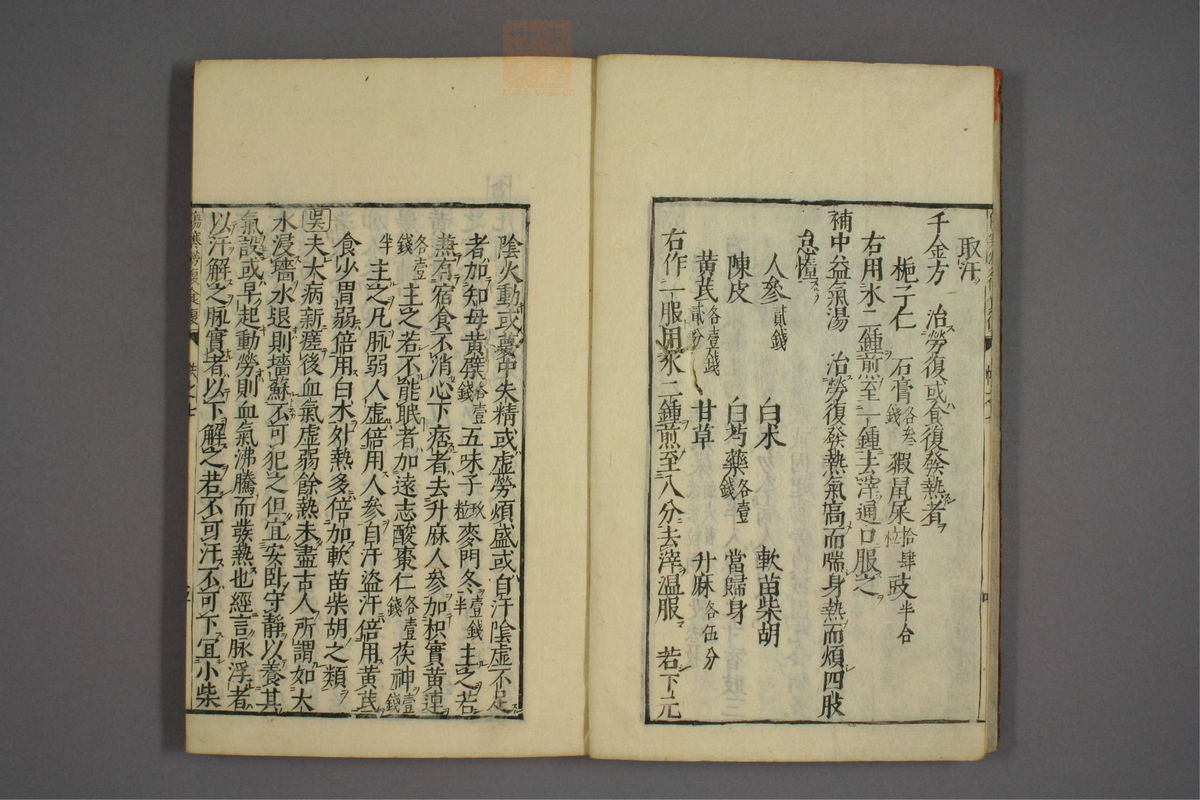 取汗
千金方　治勞復或食復發熱者
梔子仁　石膏各叁錢　豭鼠屎拾肆粒　豉半合
右用水二鍾煎至一鍾去滓通口服之
補中益氣湯　治勞復發熱氣高而喘身熱而煩四肢
怠惰
人參貳錢　白朮　軟苗柴胡
陳皮　白芍藥各壹錢　當歸身
黃芪各壹錢貳分　甘草　升麻各伍分
右作一服用水二鍾煎至八分去滓溫服　若下元
陰火動或夢中失精或虛勞煩盛或自汗陰虛不足
者加知母黃檗各壹錢五味子玖粒麥門冬壹錢半主之若
兼有宿食不消心下痞者去升麻人參加枳實黃連
各壹錢主之若不能眠者加遠志酸棗仁各壹錢茯神壹錢
半主之凡脉弱人虛倍用人參自汗盜汗倍用黃芪
食少胃弱倍用白朮外熱多倍加軟苗柴胡之類
吳夫大病新瘥後血氣虛弱餘熱未盡古人所謂如大
水浸墻水退則墻蘇不可犯之但宜安臥守靜以養其
氣設或早起動勞則血氣沸騰而發熱也經言脉浮者
以汗解之脉實者以下解之若不可汗不可下宜小柴